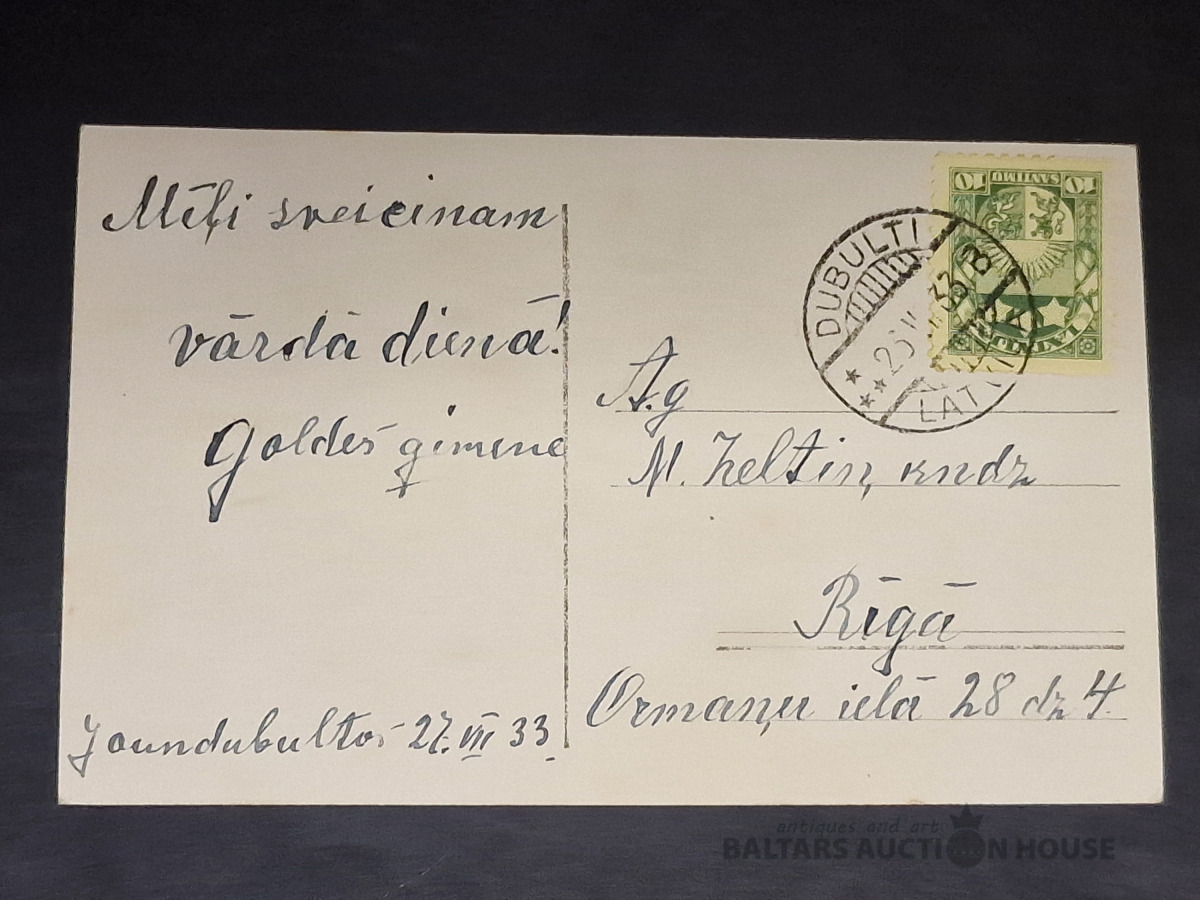 Mīļi sveicinam
vārdā dienā!
Goldes ģimene
Jaundubultos 27. VII 33.
10 SANTIMU 10
LATVIJA
DUBULTI
LATVIJA
A.g
M. Zeltiņ kndz
Rīgā
Ormaņu ielā 28 dz 4.
antiques and art
BALTARS AUCTION HOUSE